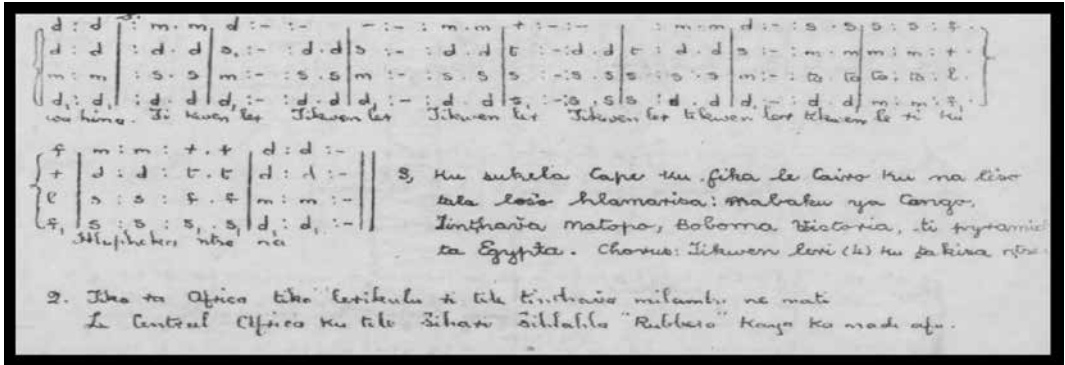 d : d | : m . m | d : - : - | - : - : m . m | r : - : - | : m . m | d : - : s . s | s : s : f .
d : d | : d . d | s, : - : d . d | s : - : d . d | t : - : d . d | t : d . d | s : - : m . m | m : m : r .
m : m | : s . s | m : - : s . s | m : - : s . s | s : - : s . s | s : s . s | m : - : ta . ta | ta : ta : l .
d, : d, | : d . d | d, : - : d . d | d, : - : d . d | s, : - : s . s | s : d . d | d, : - : d . d, | m : m : f, .
wa hina. Ti kwen ler Tikwen ler Tikwen ler Tikwen ler tikwen ler tikwen le ri ku
f | m : m : r . r | d : d : - ||
r | d : d : t . t | d : d : - ||
l | s : s : f . f | m : m : - ||
f, | s : s : s, . s | d, : d, : - ||
ntro na
3, Ku sukela Cape ku fika le Cairo ku na leso
hlamarisa: mabaku ya Congo,
Tinthava Matopo, Boboma Victoria, ti pyramid
ta Egypta. Chorus: Tikwen leri (4) ku
2. Tiko ra Africa tiko lerikulu ri tele tinthava milambu na mati
Le Central Africa ku tele Sihari Sihlahla "Rubbero" Kaya ka